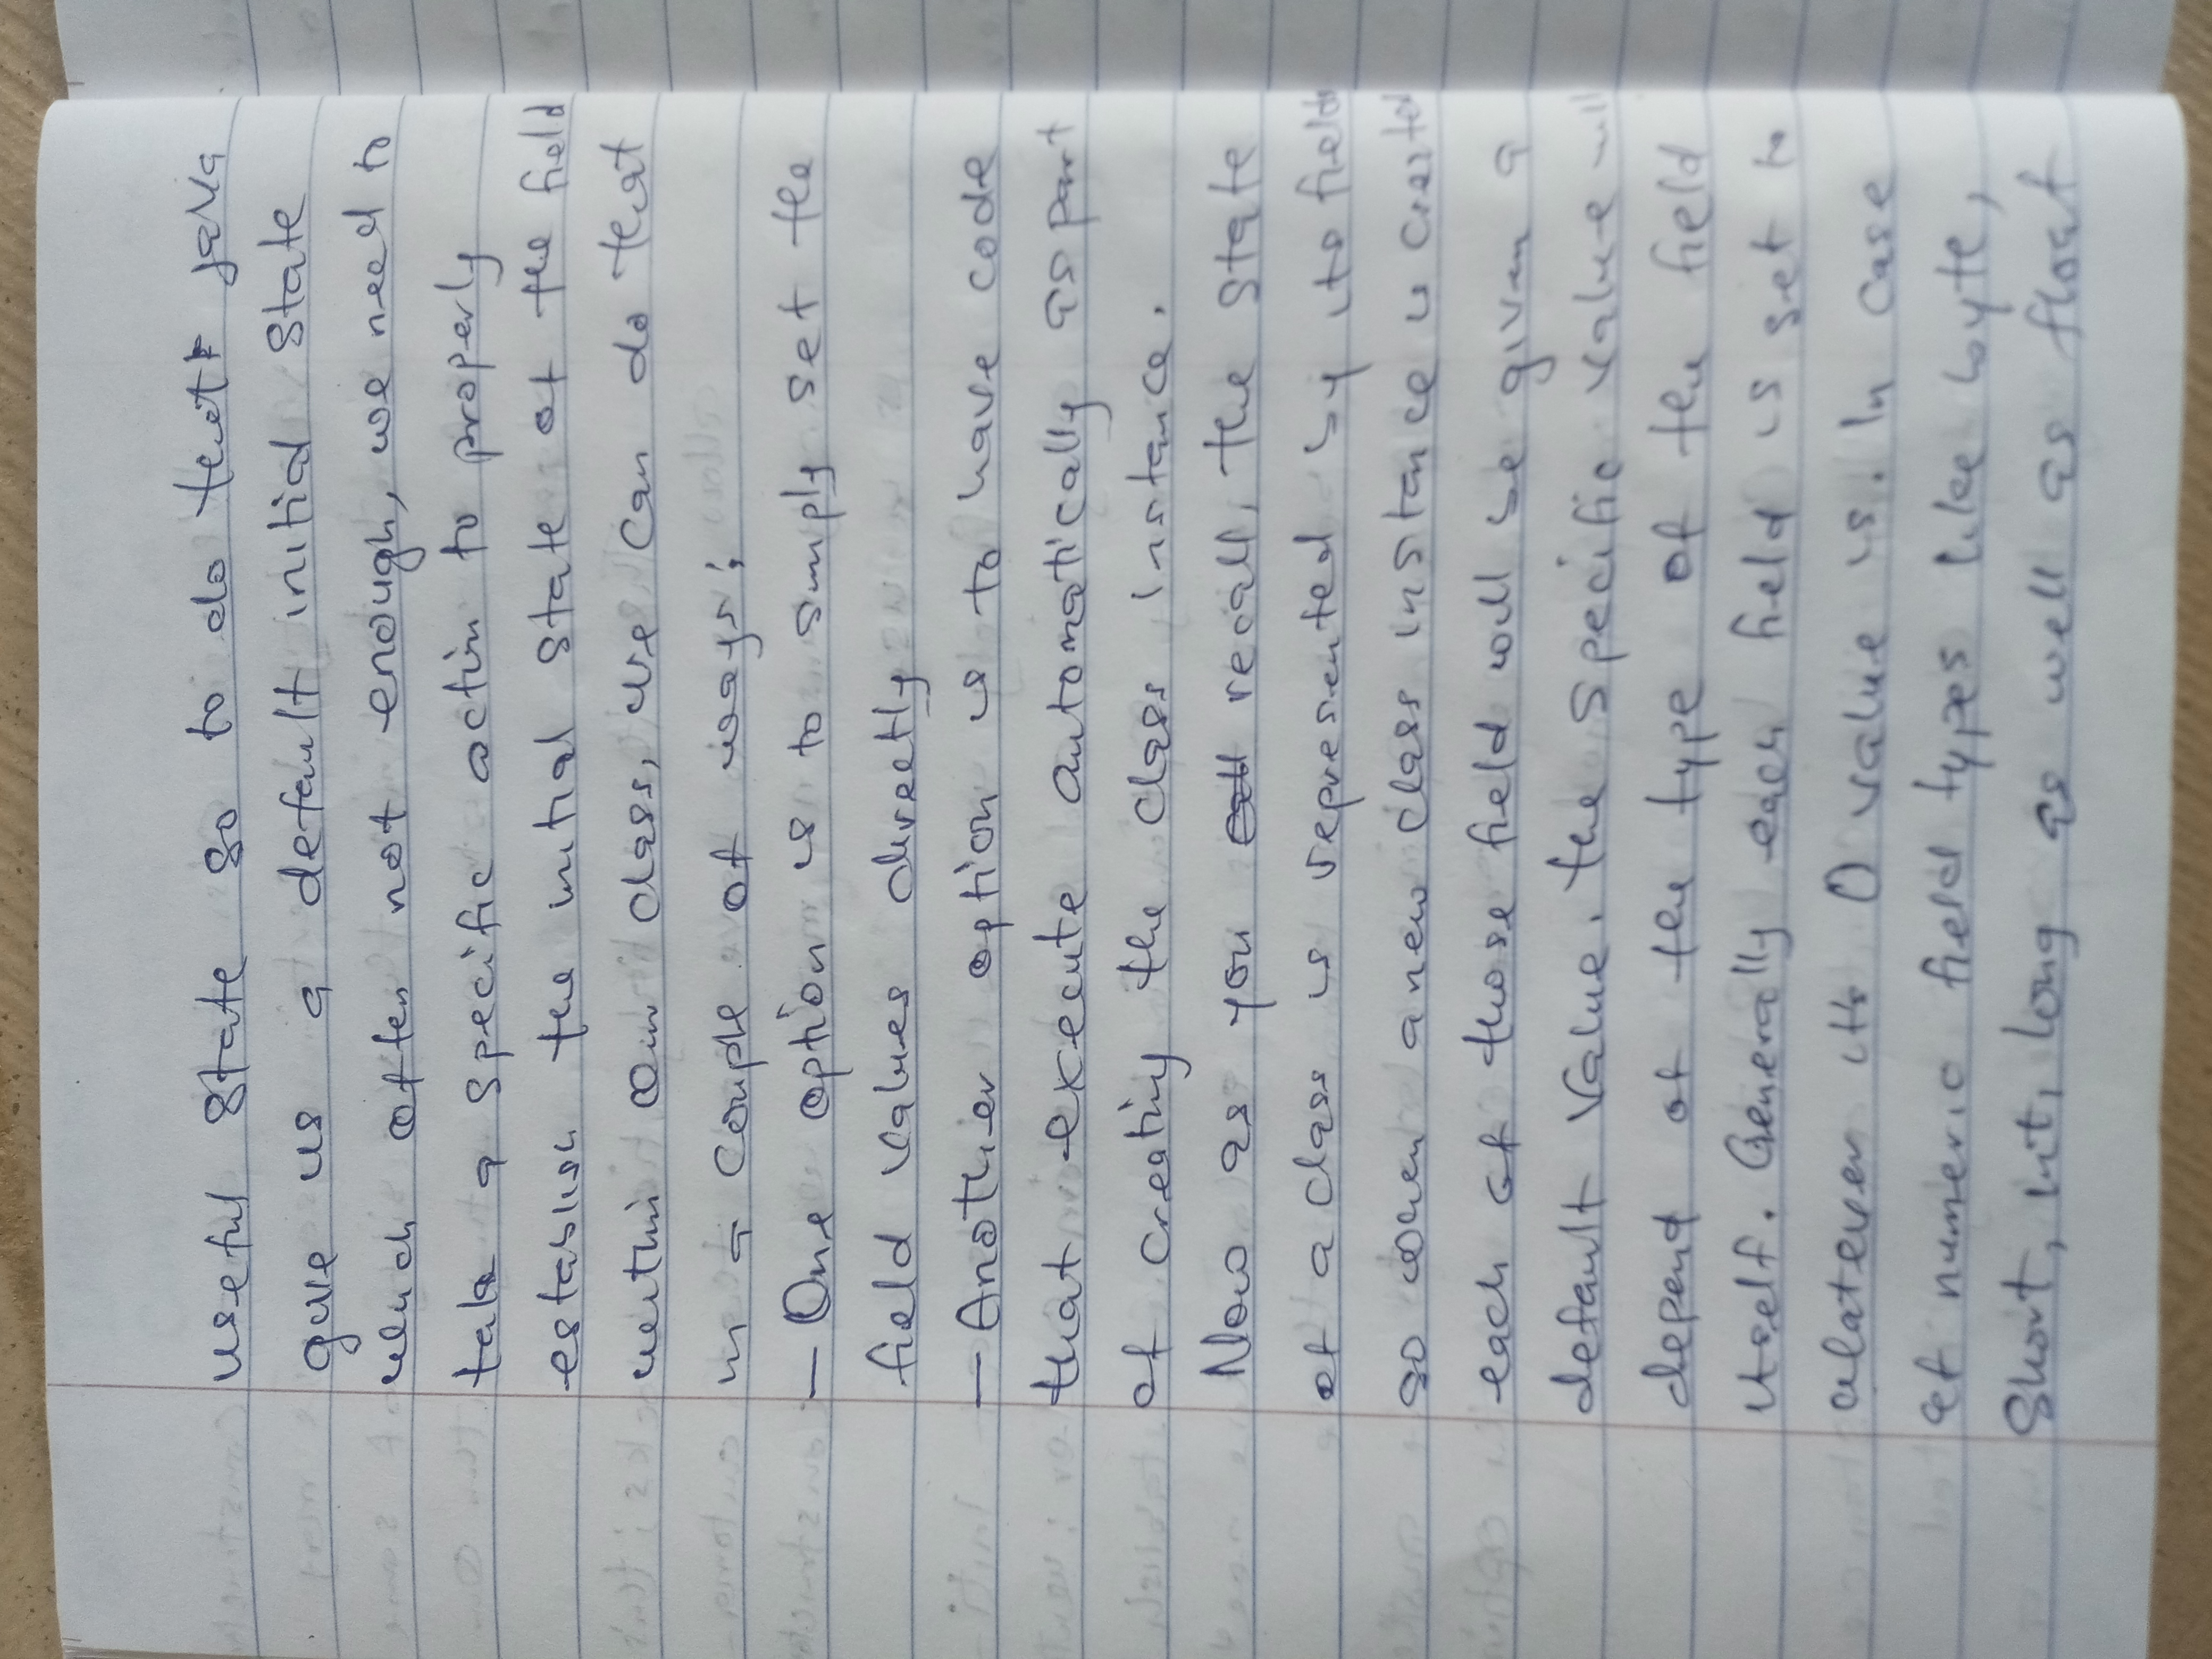 useful state so to do that java
give us a default initial state
which often not enough, we need to
take a specific action to properly
establish the initial state of the field
within our class, we can do that
in a couple of ways;
- One option is to simply set the
field values directly
- Another option is to have code
that execute automatically as part
of creating the class instance.
Now as you recall, the state
of a class is represented by its field
so when a new class instance is created
each of those field will be given a
default value. the specific value will
depend of the type of the field
itself. Generally each field is set to
whatever its 0 value is. In case
of numeric field types like byte,
short, int, long as well as float